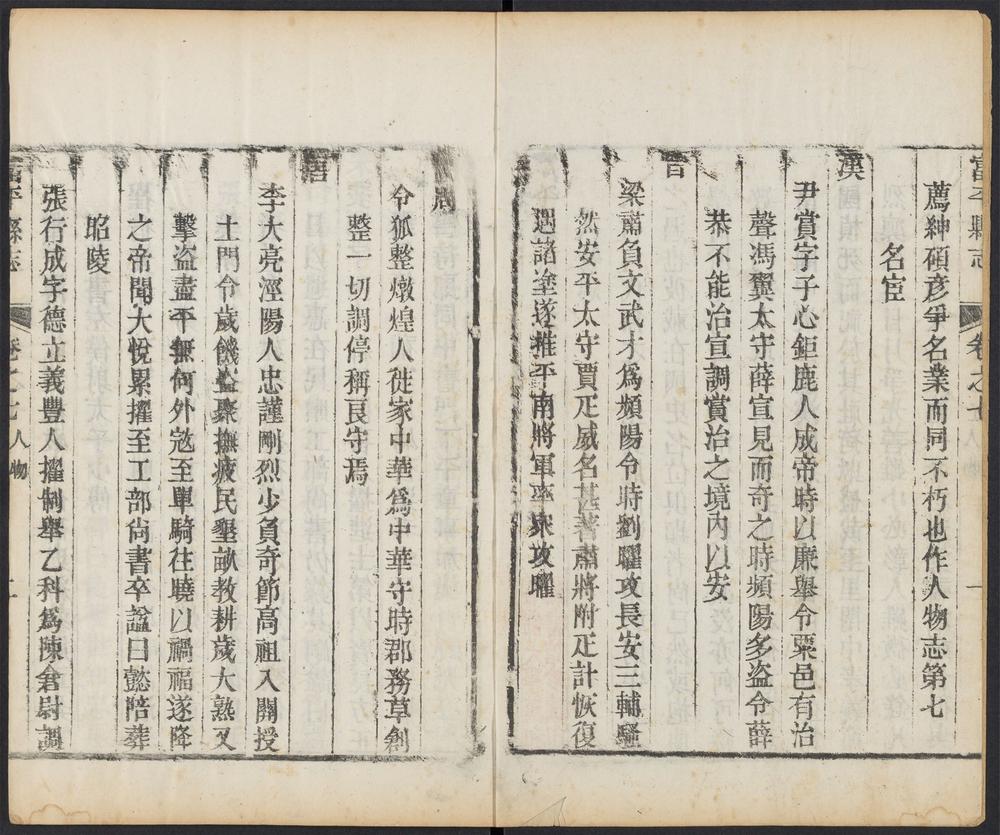 富平縣志 卷之七 人物 一
薦紳碩彥爭名業而同不朽也作人物志第七
名宦
漢
尹賞字子心鉅鹿人成帝時以廉舉令粟邑有治
聲馮翼太守薛宣見而奇之時頻陽多盜令薛
恭不能治宣調賞治之境內以安
晉
梁肅負文武才爲頻陽令時劉曜攻長安三輔騷
然安平太守賈疋威名甚著肅將附疋計恢復
遇諸塗遂推平南將軍率衆攻曜
周
令狐整燉煌人徙家中華爲中華守時郡務草創
整一切調停稱良守焉
唐
李大亮涇陽人忠謹剛烈少負奇節高祖入關授
土門令歲饑盜聚撫疲民墾畝教耕歲大熟又
擊盜盡平無何外寇至單騎往曉以禍福遂降
之帝聞大悅累擢至工部尚書卒諡曰懿陪葬
昭陵
張行成字德立義豐人擢制舉乙科爲陳倉尉調
富平縣志 卷之七 人物 一